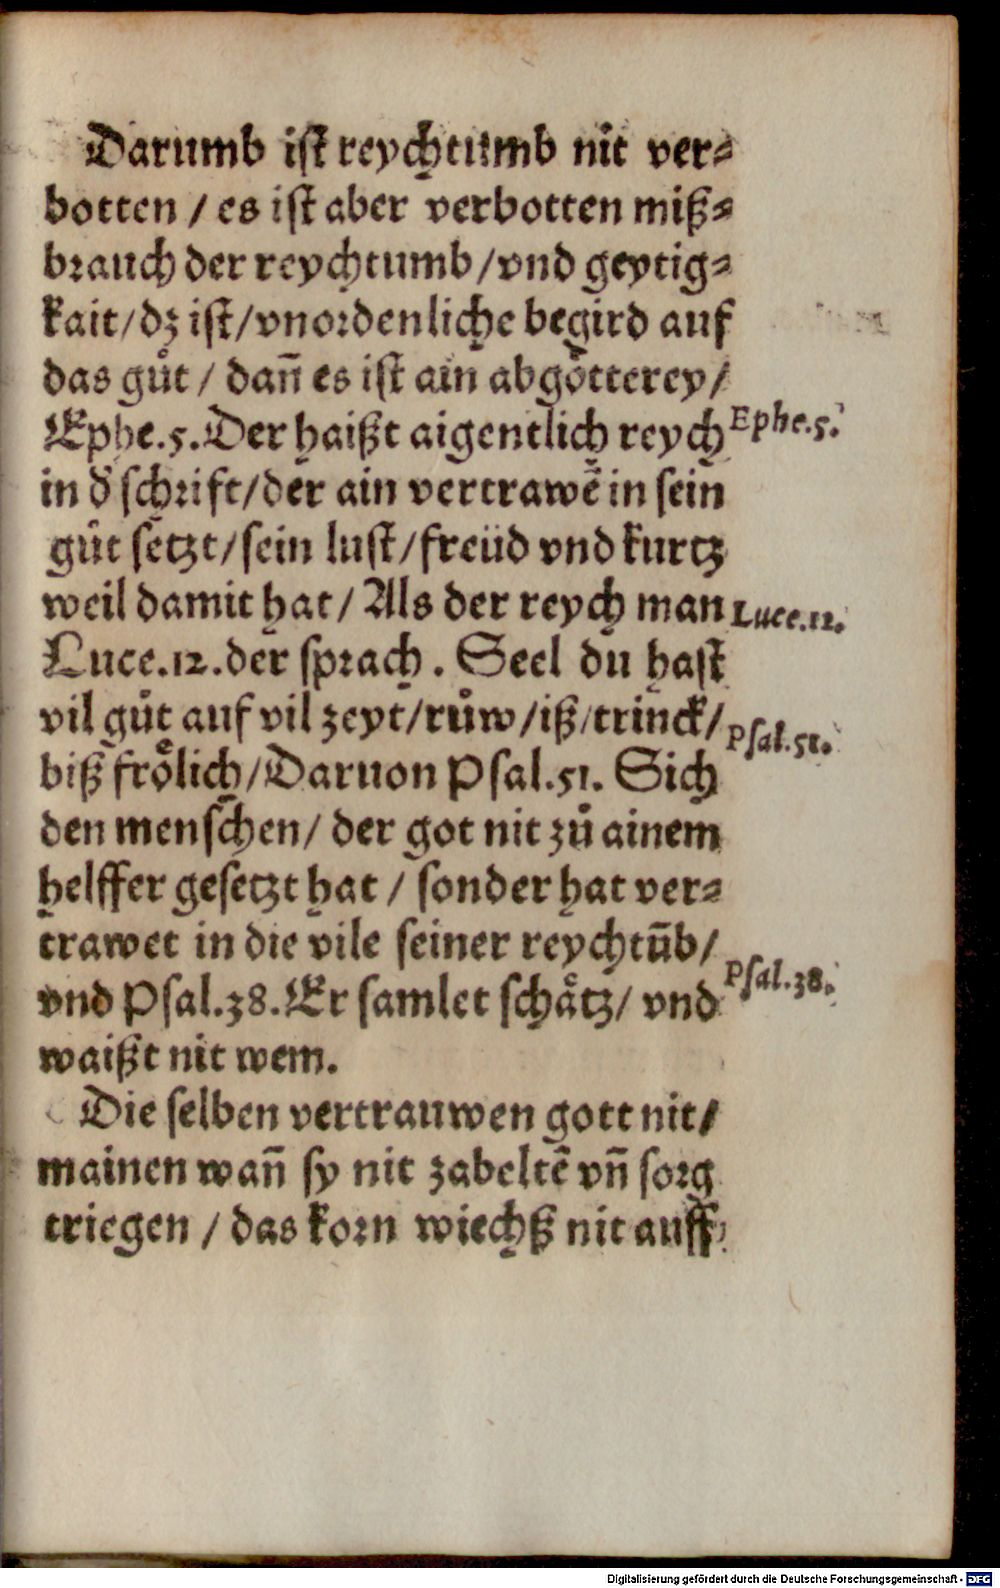 Darumb iſt reychtumb nit ver⸗
botten / es iſt aber verbotten miß⸗
brauch der reychtumb / vnd geytig⸗
kait / dz iſt / vnordenliche begird auf
das guͦt / dañ es iſt ain abgoͤtterey /
Ephe.5. Der haißt aigentlich reych
Ephe.5.
in d̕ ſchrift / der ain vertrawẽ in ſein
guͦt ſetzt / ſein luſt / freüd vnd kurtz
weil damit hat / Als der reych man
Luce.12.
Luce.12. der ſprach . Seel du haſt
vil guͦt auf vil zeyt / ruͦw / iß / trinck /
Pſal.51.
biß froͤlich / Daruon Pſal.51. Sich
den menſchen / der got nit zuͦ ainem
helffer geſetzt hat / ſonder hat ver⸗
trawet in die vile ſeiner reychtũb /
Pſal.38.
vnd Pſal.38. Er ſamlet ſchaͤtz / vnd
waißt nit wem.
Die ſelben vertrauwen gott nit /
mainen wañ ſy nit zabeltẽ vñ ſorg
triegen / das korn wiechß nit auff /
Digitalisierung gefördert durch die Deutsche Forschungsgemeinschaft - DFG